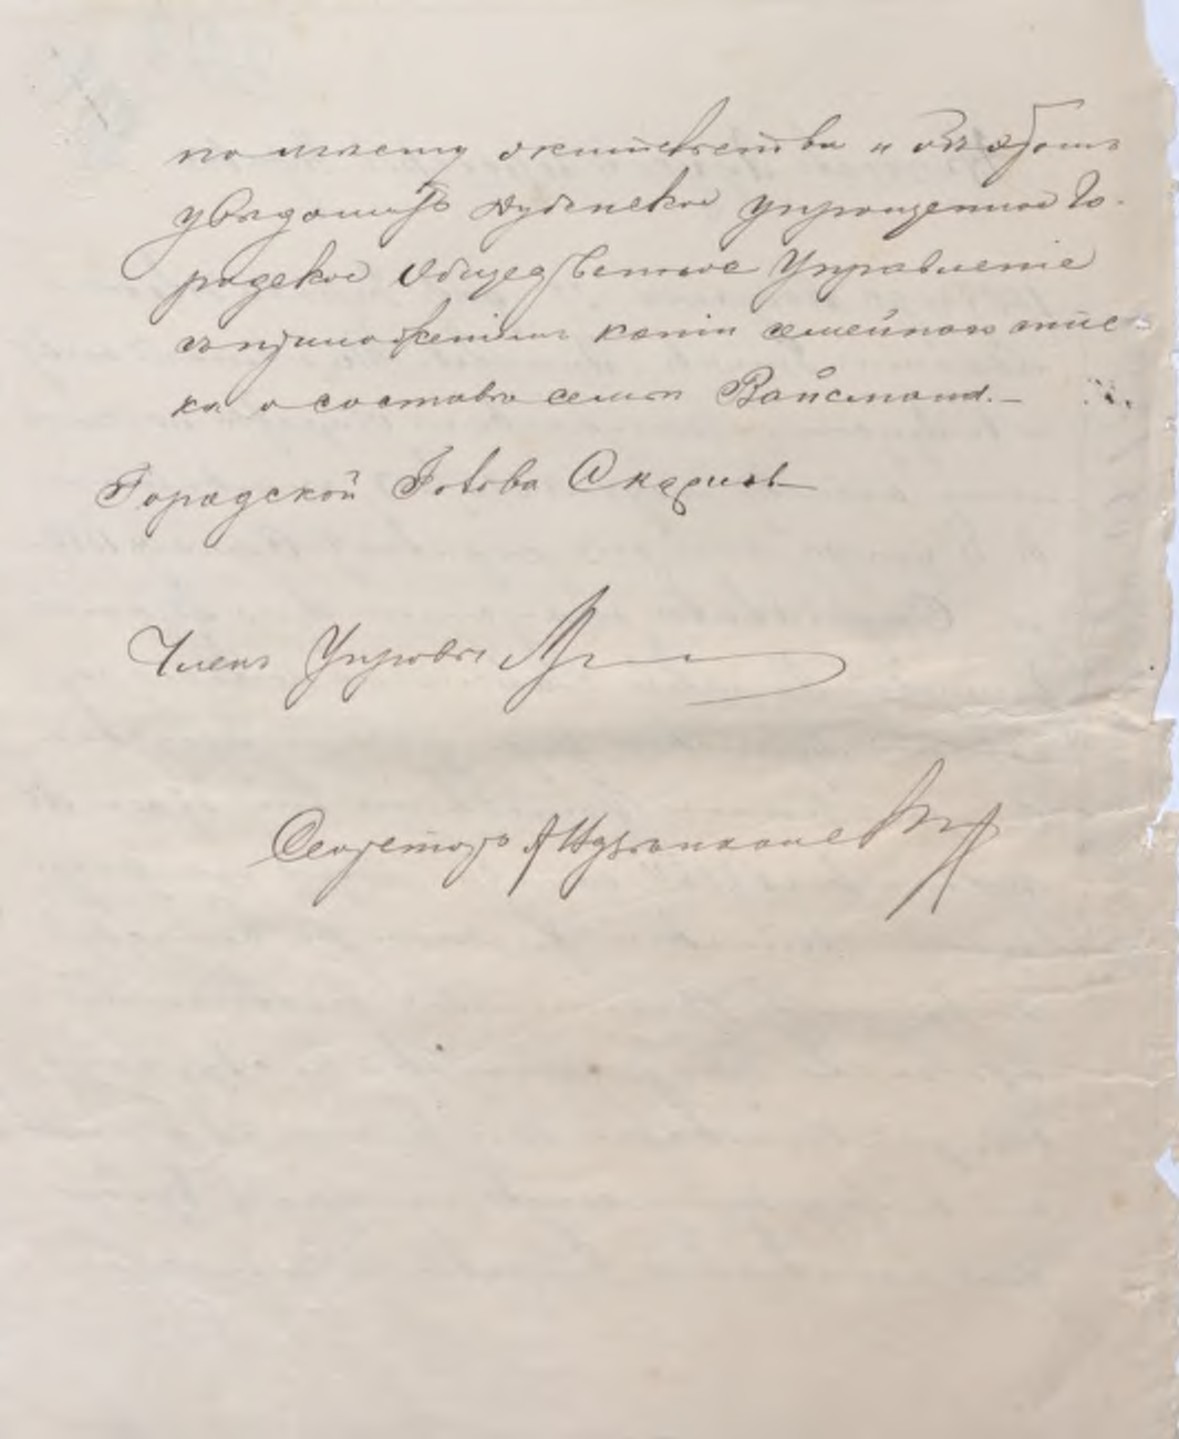 по мѣсту жительства и объ этомъ
увѣдомить Дубенское упрощенное Го-
родское Общественное Управленіе
съ приложеніемъ копіи семейнаго спис-
ка о составѣ семьи Вайсманъ.—
Городской Голова
Членъ Управы
Секретарь